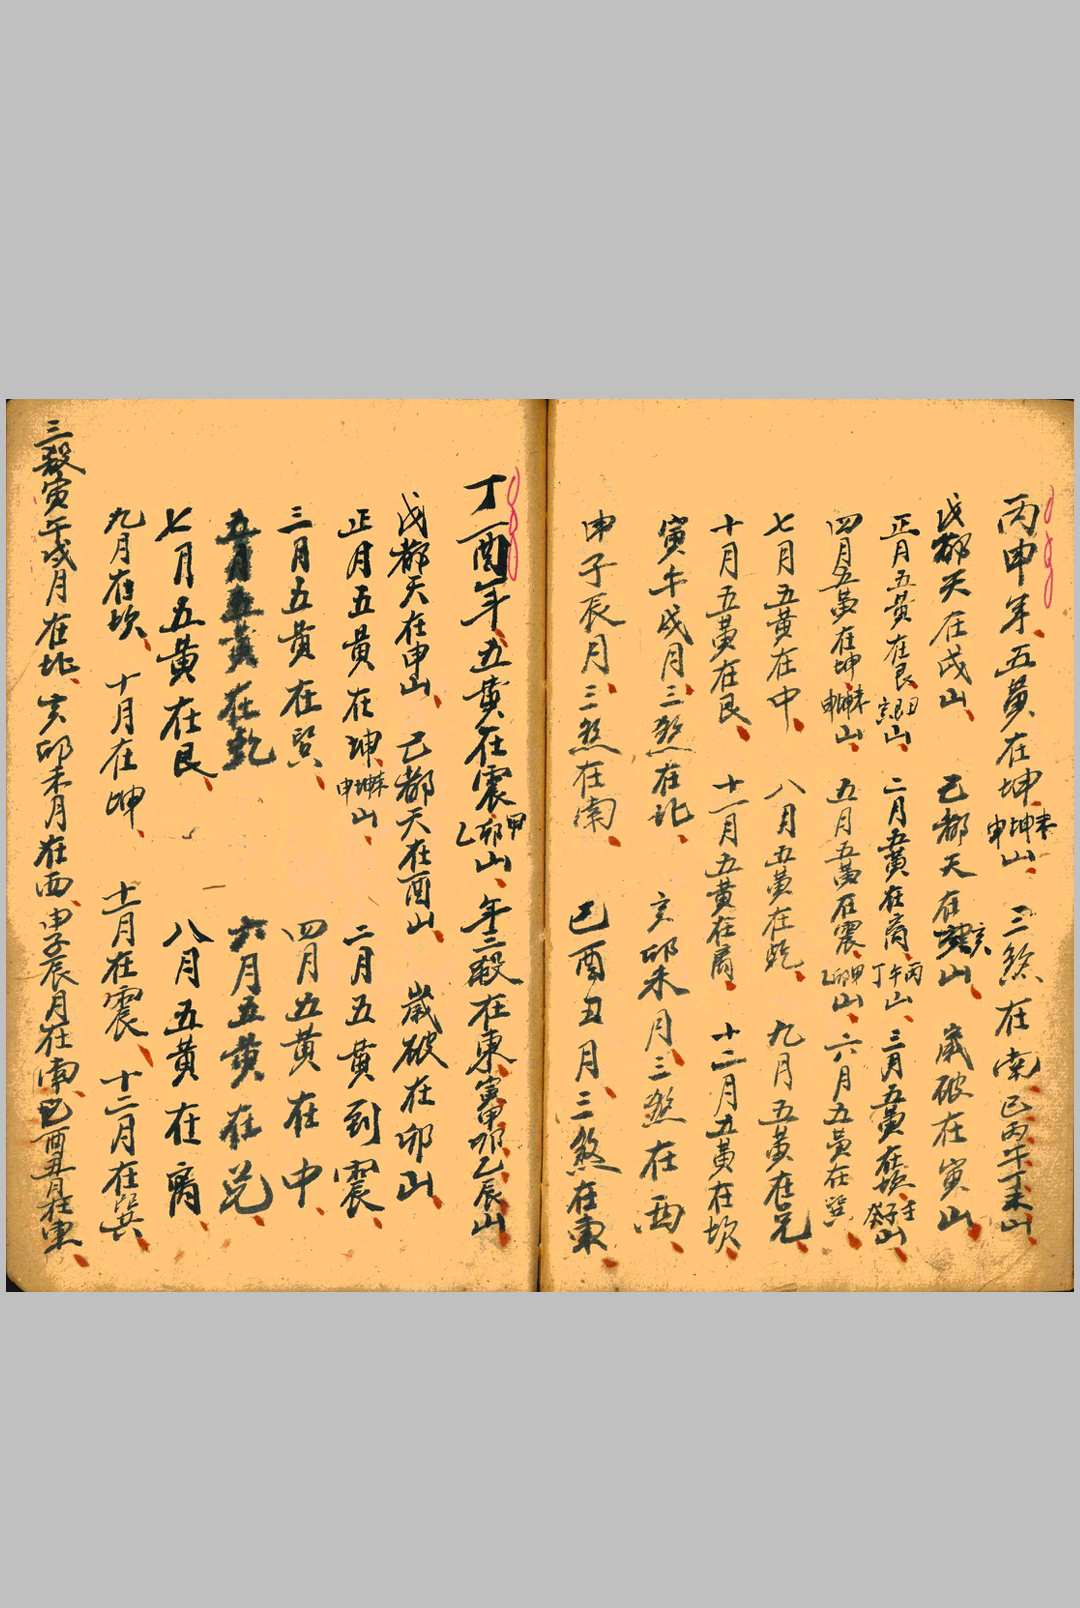 丙申年五黃在坤未坤申山三煞在南巳丙午丁未山
戊都天在戌山己都天在亥山歲破在寅山
正月五黃在艮丑艮寅山二月五黃在离丙午丁山三月五黃在坎壬子癸山
四月五黃在坤未坤申山五月五黃在震甲卯乙山六月五黃在巽
七月五黃在中八月五黃在乾九月五黃在兑
十月五黃在艮十一月五黃在离十二月五黃在坎
寅午戌月三煞在北亥卯未月三煞在西
申子辰月三煞在南巳酉丑月三煞在東
丁酉年五黃在震甲卯乙山年三殺在東寅甲卯乙辰山
戊都天在申山己都天在酉山歲破在卯山
正月五黃在坤未坤申山二月五黃到震
三月五黃在巽四月五黃在中
五月五黃在乾六月五黃在兑
七月五黃在艮八月五黃在离
九月在坎十月在坤十一月在震十二月在巽
三殺寅午戌月在北亥卯未月在西申子辰月在南巳酉丑月在東